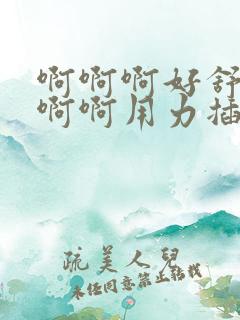 啊啊啊好舒
啊啊用力插
疏美人儿
未经同意禁止转载